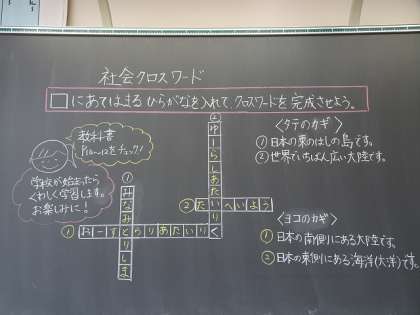 社会クロスワード
□にあてはまるひらがなを入れてクロスワードを完成させよう。
教科書
をチェック!
学校が始まったら
くわしく学習します。
お楽しみに!
①
みなみとりしま
②
ゆーらしあたいりく
②たいへいよう
①おーすとらりあたいりく
〈タテのカギ〉
①日本の東のはしの島です。
②世界でいちばん広い大陸です。
〈ヨコのカギ〉
①日本の南側にある大陸です。
②日本の東側にある海洋(大洋)です。